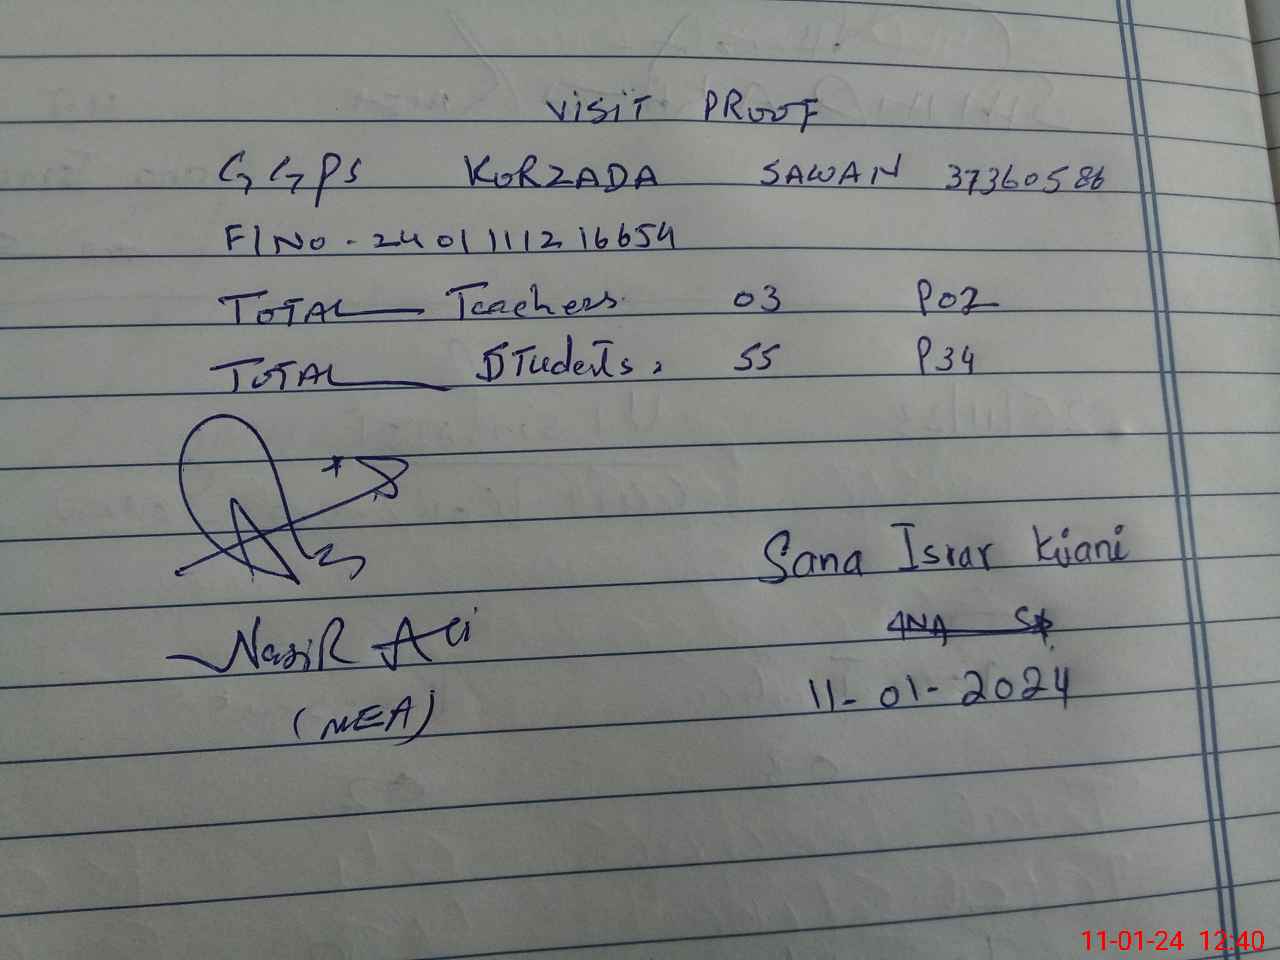 VISIT PROOF
GGPS KORZADA SAWAN 37360586
FI No. 240111121 6654
TOTAL Teachers 03 P02
TOTAL Students, 55 P34
Sana Israr Kiani
Nasir Ali
11-01-2024
(MEA)
11-01-24 12:40